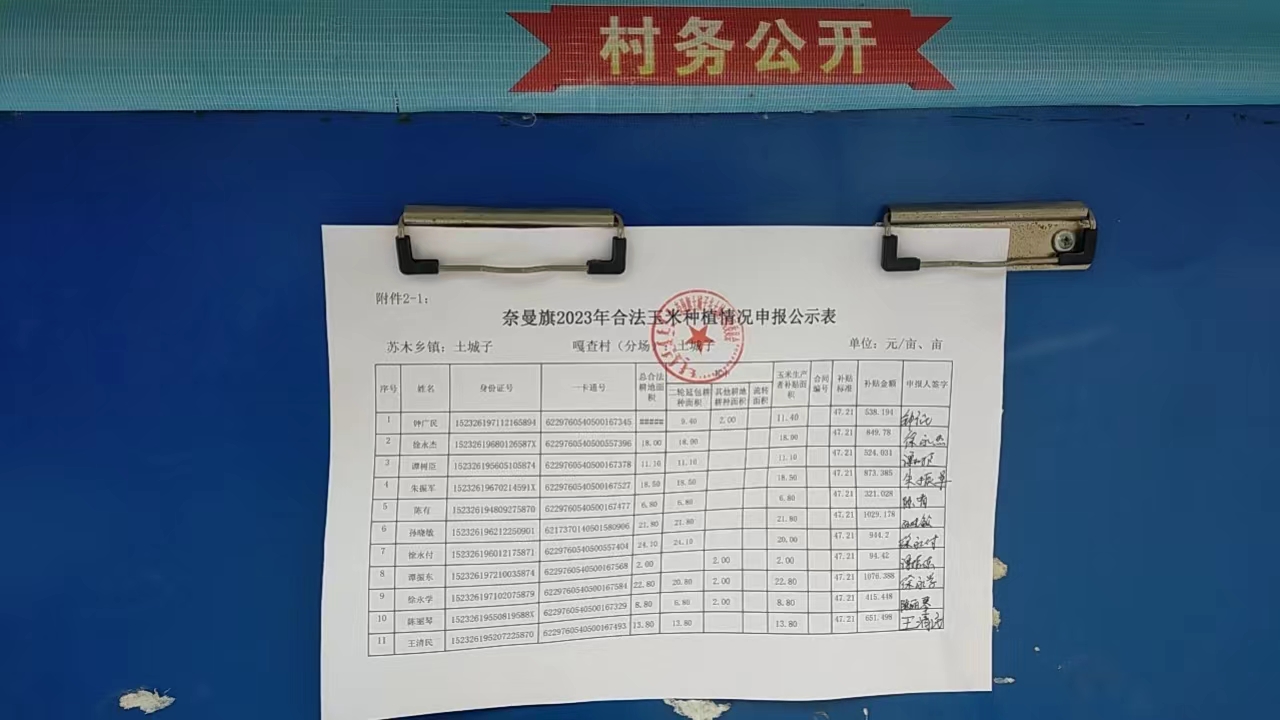 村务公开
附件2-1:
奈曼旗2023年合法玉米种植情况申报公示表
苏木乡镇：土城子 嘎查村（分场）：土城子 单位：元/亩、亩
序号 姓名 身份证号 一卡通号 总合法耕地面积 二轮延包耕种面积 其他耕地耕种面积 流转面积 玉米生产者补贴面积 合同编号 补贴标准 补贴金额 申报人签字
1 钟广民 152326197112165894 6229760540500167345 ##### 9.40 2.00 11.40 47.21 538.194
2 徐永杰 15232619680126587X 6229760540500557396 18.00 18.00 18.00 47.21 849.78 徐永杰
3 谭树臣 152326195605105874 6229760540500167378 11.10 11.10 11.10 47.21 524.031
4 朱振军 15232619670214591X 6229760540500167527 18.50 18.50 18.50 47.21 873.385 朱振军
5 陈有 152326194809275870 6229760540500167477 6.80 6.80 6.80 47.21 321.028 陈有
6 孙晓敏 152326196212250901 6217370140501580906 21.80 21.80 21.80 47.21 1029.178
7 徐永付 152326196012175871 6229760540500557404 24.10 24.10 20.00 47.21 944.2 徐永付
8 谭振东 152326197210035874 6229760540500167568 2.00 2.00 2.00 47.21 94.42
9 徐永学 152326197102075879 6229760540500167584 22.80 20.80 2.00 22.80 47.21 1076.388 徐永学
10 陈丽琴 15232619550819588X 6229760540500167329 8.80 6.80 2.00 8.80 47.21 415.448 陈丽琴
11 王清民 152326195207225870 6229760540500167493 13.80 13.80 13.80 47.21 651.498 王清民